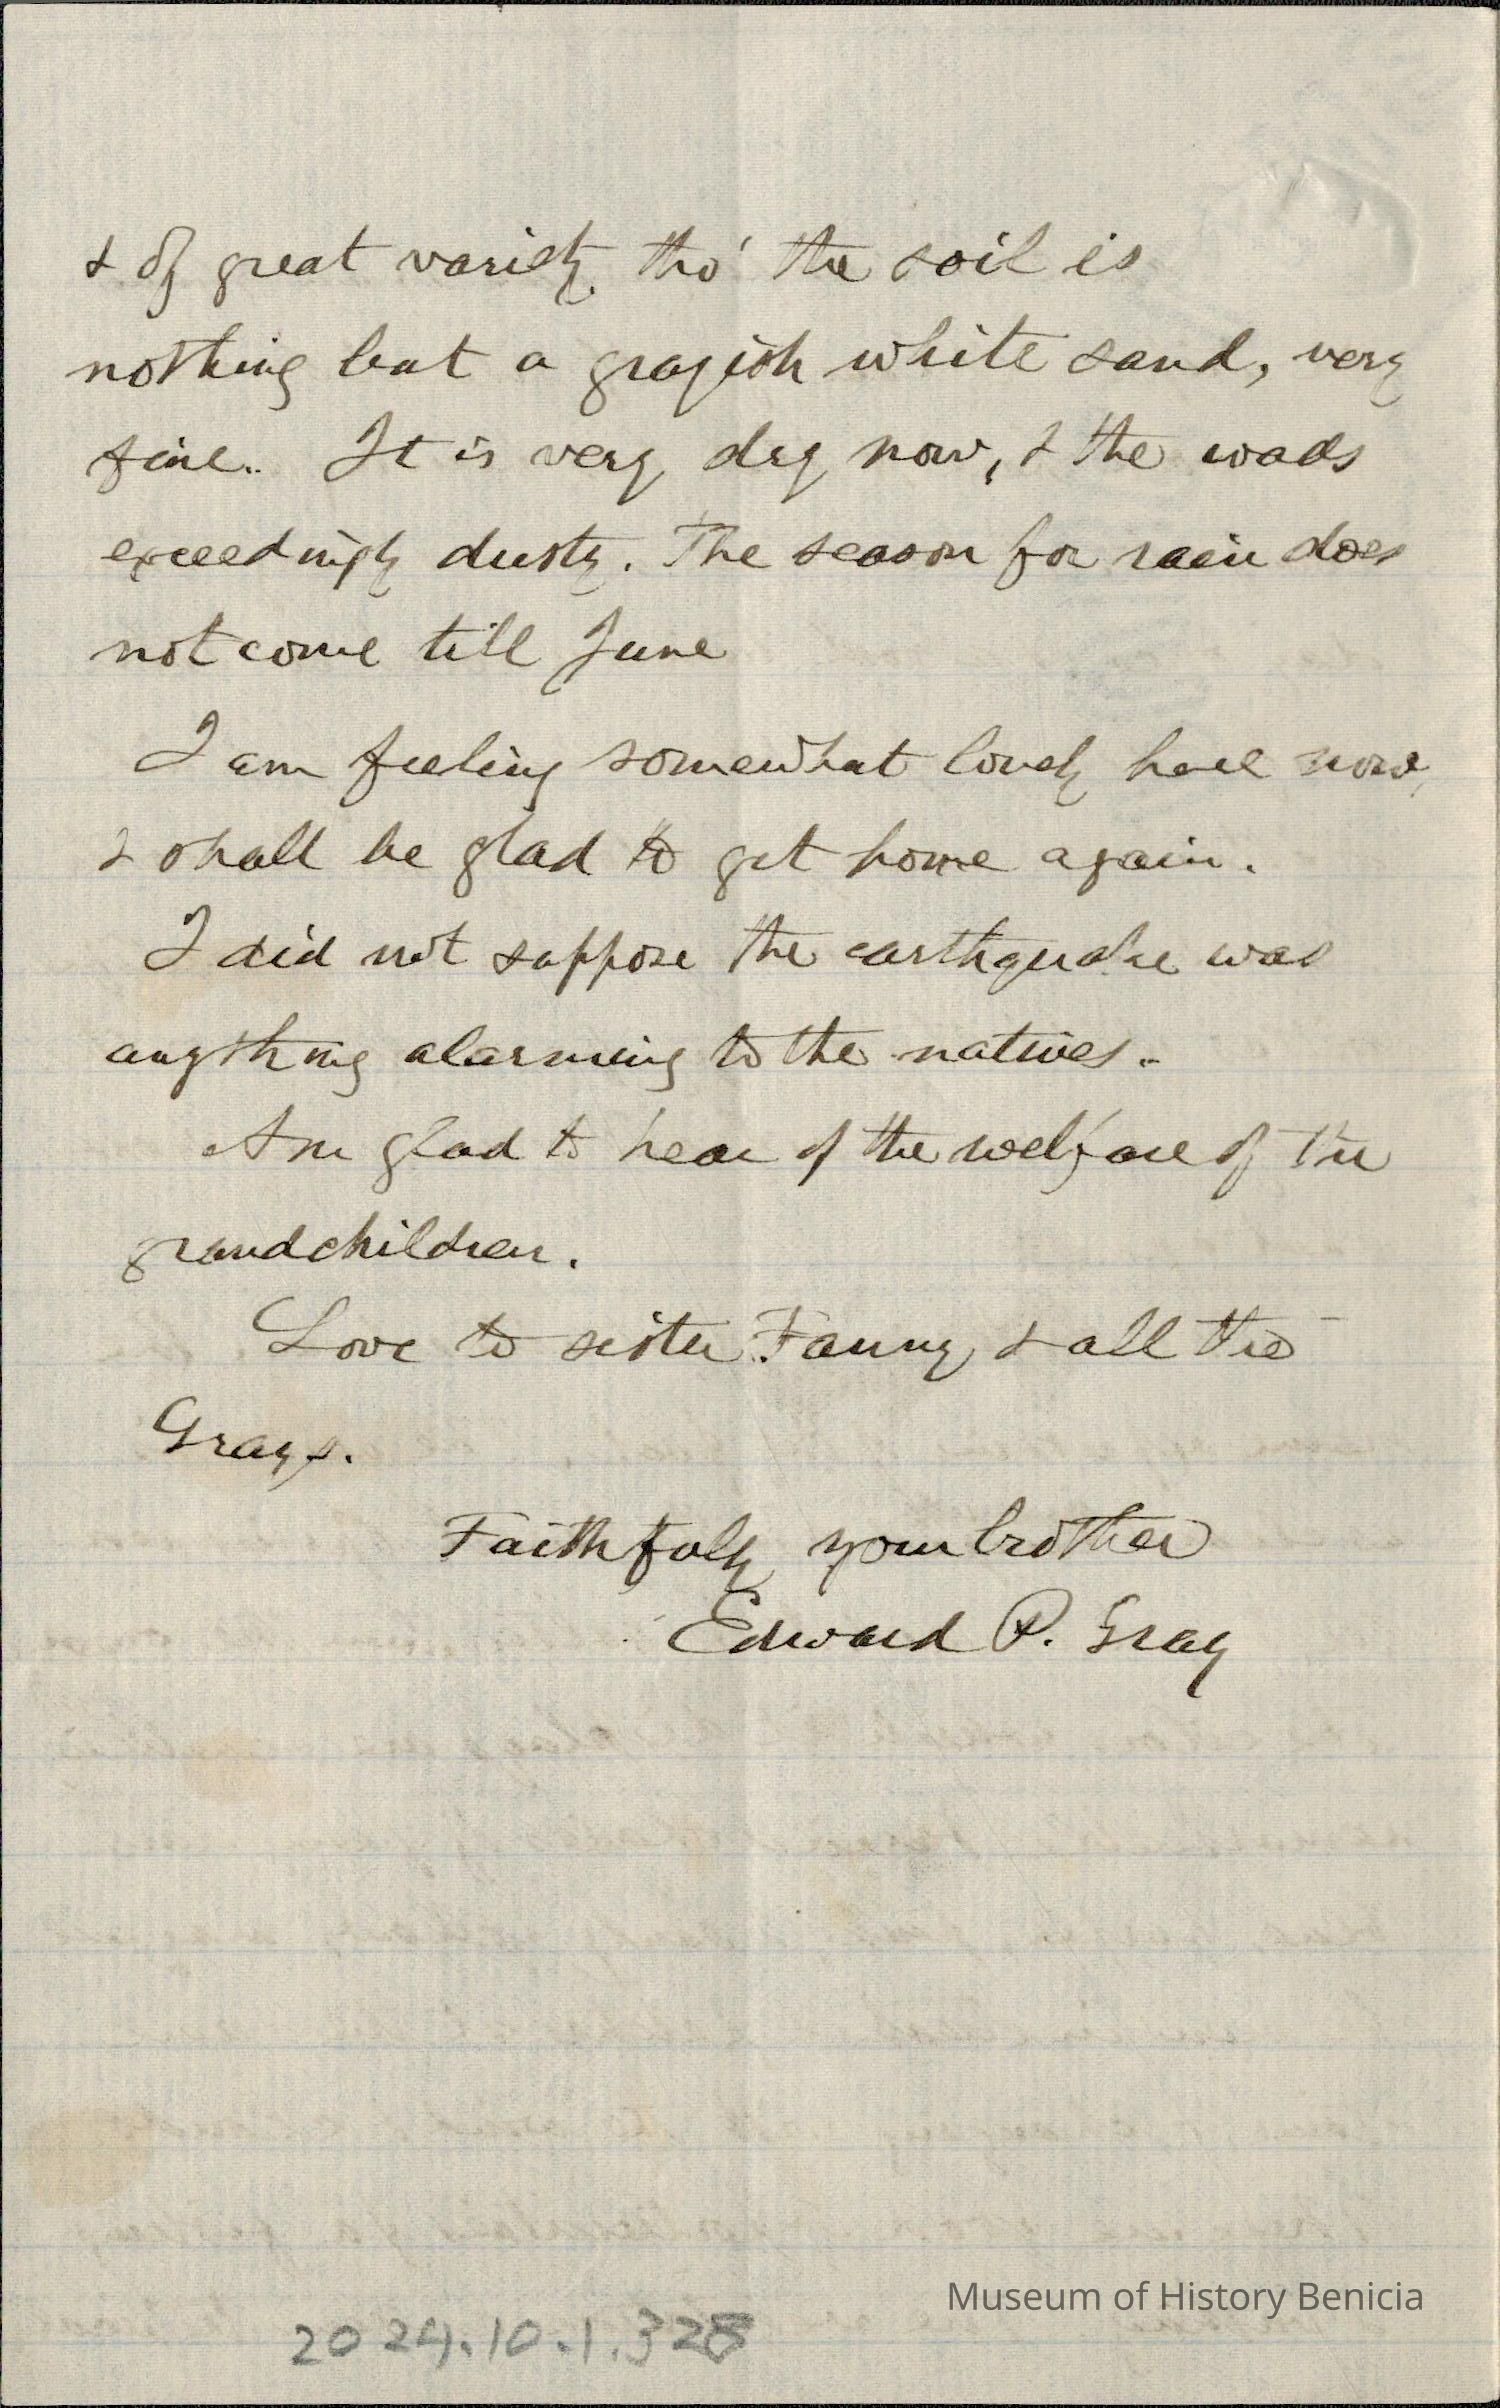 & of great variety tho' the soil is
nothing but a grayish white sand, very
fine. It is very dry now, & the roads
exceedingly dusty. The season for rain does
not come till June
I am feeling somewhat lonely here now,
& shall be glad to get home again.
I did not suppose the earthquake was
anything alarming to the natives.
Am glad to hear of the welfare of the
grandchildren.
Love to sister Fanny & all the
Grays.
Faithfully your brother
Edward P. Gray
Museum of History Benicia
2024.10.1.328